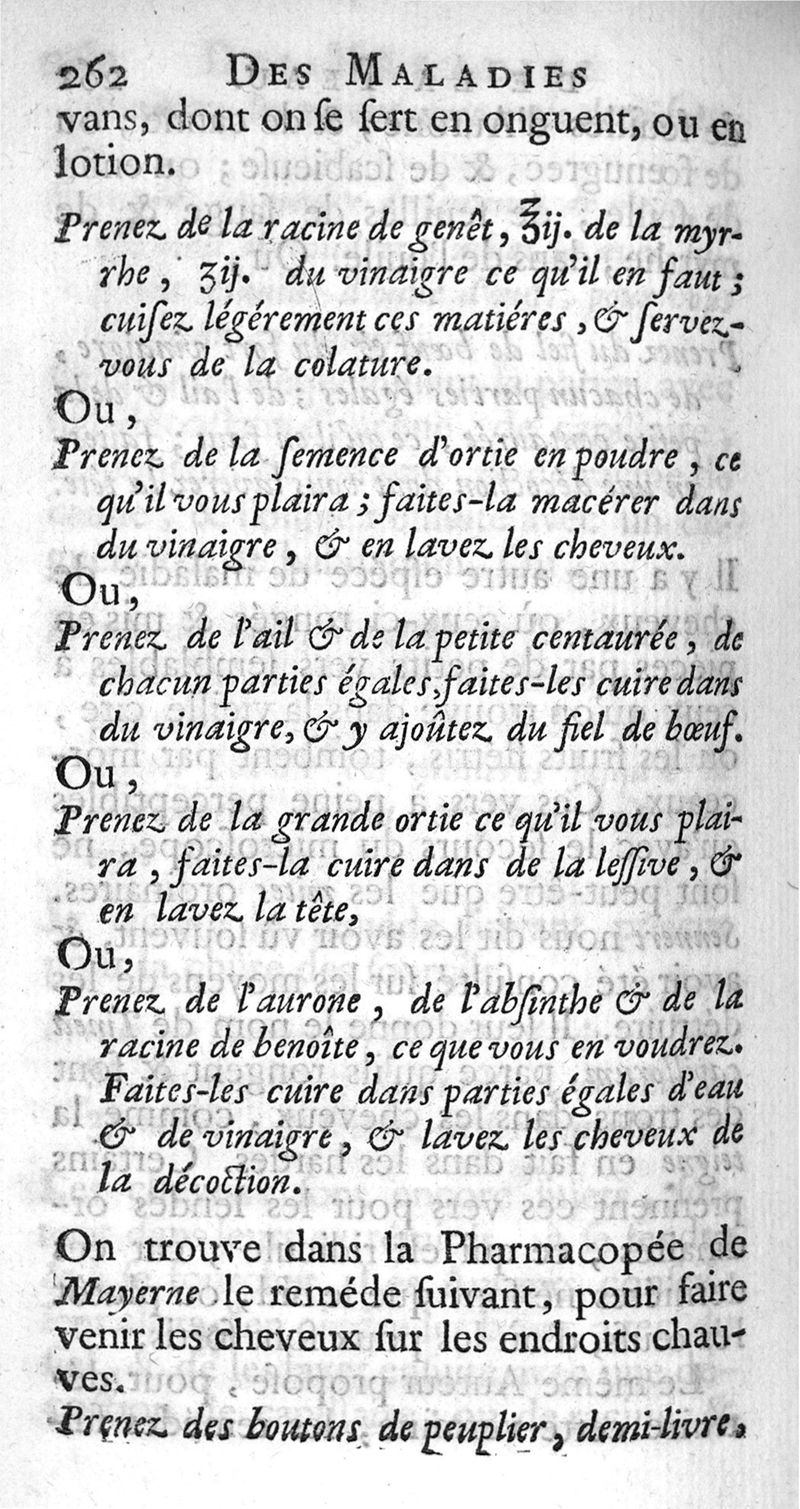 262 DES MALADIES
vans, dont on ſe ſert en onguent, ou en
lotion.
Prenez de la racine de genêt, ℥ij. de la myr-
rhe, ʒij. du vinaigre ce qu'il en faut ;
cuiſez légérement ces matiéres, & ſervez-
vous de la colature.
Ou,
Prenez de la ſemence d'ortie en poudre, ce
qu'il vous plaira ; faites-la macérer dans
du vinaigre, & en lavez les cheveux.
Ou,
Prenez de l'ail & de la petite centaurée, de
chacun parties égales, faites-les cuire dans
du vinaigre, & y ajoûtez du fiel de bœuf.
Ou,
Prenez de la grande ortie ce qu'il vous plai-
ra, faites-la cuire dans de la leſſive, &
en lavez la tête,
Ou,
Prenez de l'aurone, de l'abſinthe & de la
racine de benoîte, ce que vous en voudrez.
Faites-les cuire dans parties égales d'eau
& de vinaigre, & lavez les cheveux de
la décoction.
On trouve dans la Pharmacopée de
Mayerne le reméde ſuivant, pour faire
venir les cheveux ſur les endroits chau-
ves.
Prenez des boutons de peuplier, demi-livre,